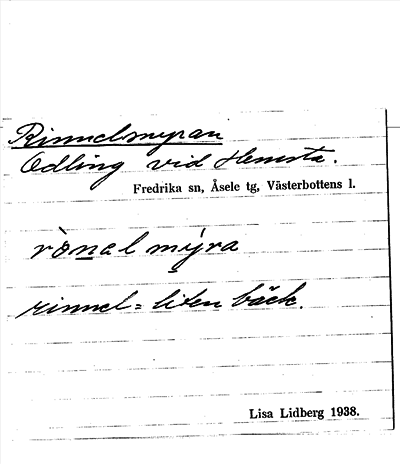 Rinnelsmyran
Odling vid Hemsta.
Fredrika sn, Åsele tg, Västerbottens l.
rònal mýra
rinnel = liten bäck.
Lisa Lidberg 1938.